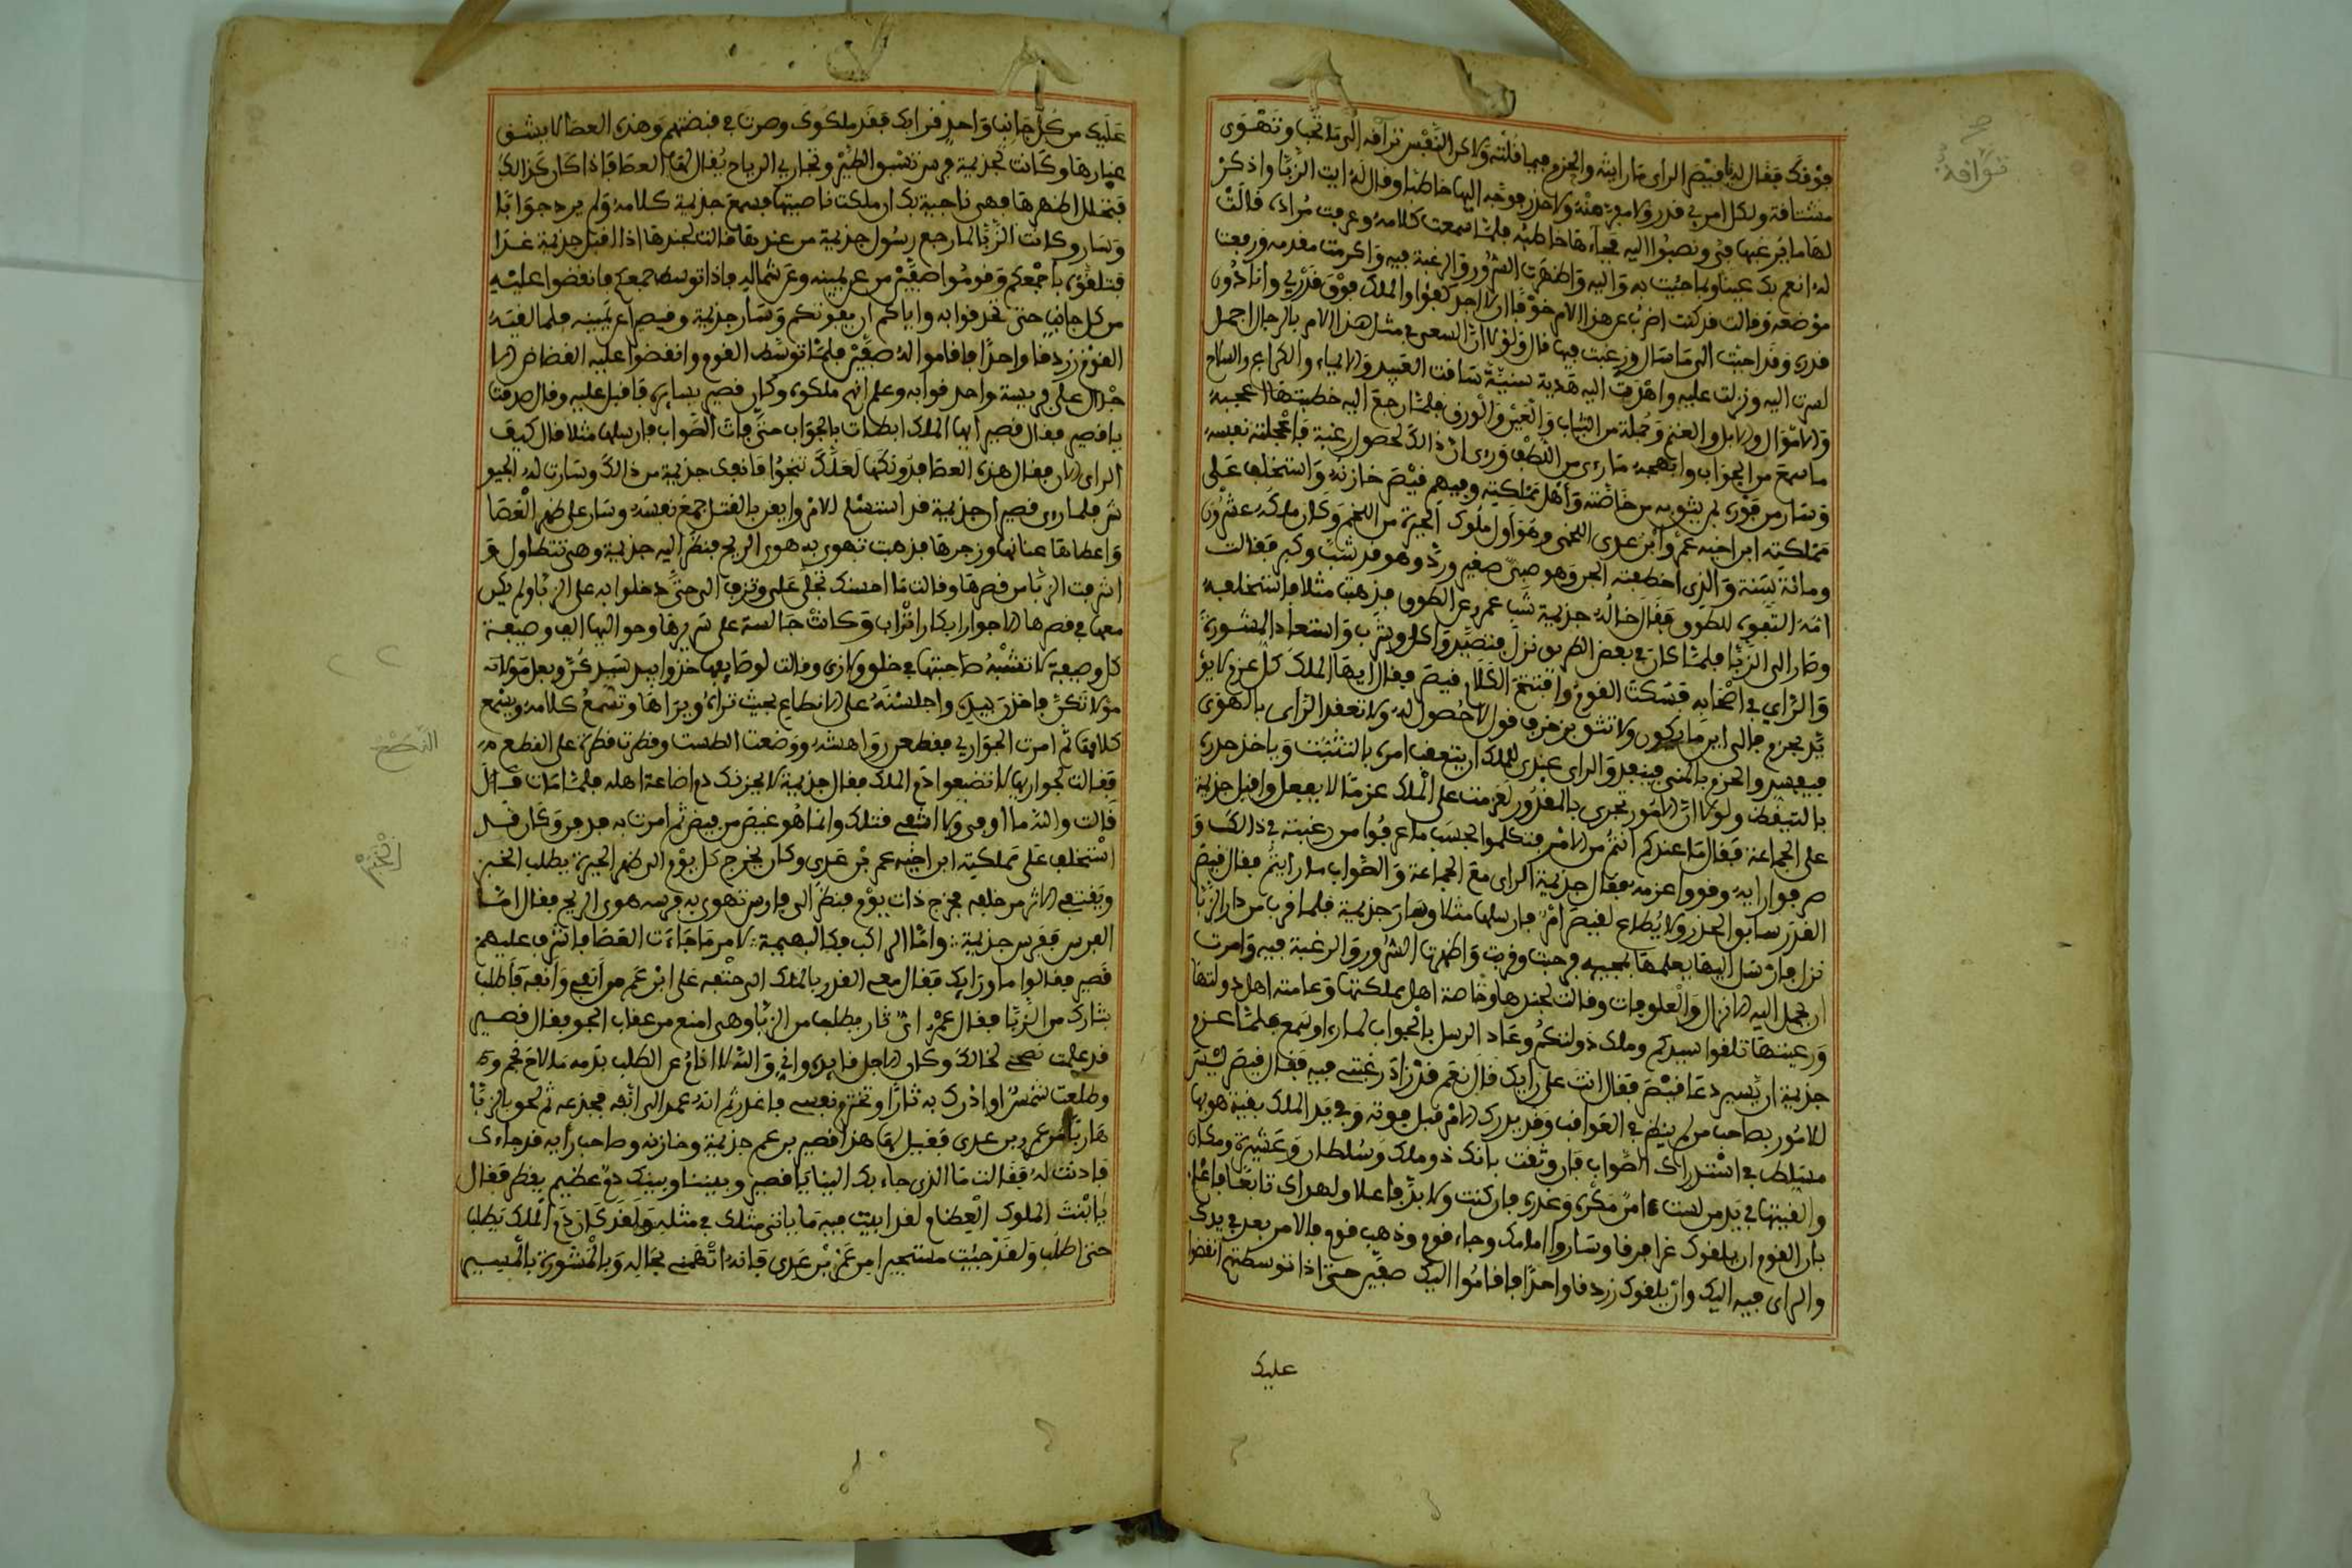 فوقك فقال له يا قيصر الراى ما رايته والحزم فيما قلته ولاكن النفس تراقة الى ما تحب وتهوى
مشتاقة ولكل امر قدر ولا مفر منه ولا حذر فوجه اليها خاطبا وقال له ايت الزبا واذكر
لها ما يرغبها في وتصبوا اليه فجاءها خاطبه فلما سمعت كلامه وعرفت مراده قالت
له انعم بك عينا وبما جئت به واليه واظهرت السرور والرغبة فيه واكرمت مقدمه ورفعت
موضعه وقالت قد كنت اضرب عن هذا الامر خوفا ان لا اجد كفؤا والملك فوق قدري وانا دون
قدره وقد اجبت الى ما سال ورغبت فيما قال ولولا ان السعي في مثل هذا الامر بالرجال اجمل
لسرت اليه ونزلت عليه واهدت اليه هدية سنية ساقت العبيد والاماء والكراع والسلاح
والاموال والابل والغنم وحملة من الثياب والعين والورق فلما رجع اليه خطيبها اعجبه
ما سمع من الجواب وابهجه ما راى من اللطف وراى ان ذالك لحصول رغبة فاعجبته نفسه
وسار من فوره بمن يثق به من خاصته واهل مملكته وفيهم قيصر خازنه واستخلف على
مملكته ابن اخيه عمرو ابن عدى اللخمي وهو اول ملوك الحيرة من اللخم وكان ملكه عشرون
ومائة سنة والذى اختطفته الجن وهو صبي صغير وردوه وقد شب وكبر فقالت
امه القوه للطوق فقال خاله جذيمة شب عمرو عن الطوق فذهبت مثلا فاستخلفه
وصار الى الزبا فلما كان في بعض الطريق نزل فتصيد واكل وشرب واستعاد المشورة
والراي في اصحابه فسكت القوم وافتتح الكلام قيصر فقال ايها الملك كل عزم لا يؤ
يد بحزم فالى اين ما يكون ولا تثق بزخرف قول لا حصول له ولا تعقد الراى بالهوى
فيفسد والحزم بالمنى فيبعد والراى عندى للملك ان يتعقب امره بالتثبت وياخذ حذره
بالتيقظ ولولا ان الامور تجرى بالمقدور لعزمت على الملك عزما لا يفعل واقبل جذيمة
على الجماعة فقال ما عندكم انتم من الامر فتكلموا بحسب ما عرفوا من رغبته في ذالك و
صرفوا رايه وقووا عزمه فقال جذيمة الراى مع الجماعة والصواب ما رايتم فقال قيصر
القدر سابق الحذر ولا يطاع لقيصر امر فارسلها مثلا وسار جذيمة فلما قرب من دار الزبا
نزل فارسل اليها يعلمها بمجيئه فرحبت وقربت واظهرت السرور والرغبة فيه وامرت
ان يحمل اليه الانزال والعلوفات وقالت لجندها وخاصة اهل مملكتها وعامة اهل دولتها
ورعيتها تلقوا سيدكم وملك دولتكم وعاد الرسل بالجواب لما راو سمع فلما عزم
جذيمة ان يسير دعا قيصر فقال انت على رايك قال نعم قد زاد رغبتي فيه فقال قيصر ليس
للامور بصاحب من لم ينظر في العواقب وقد يدرك الامر قبل فوته وفي يد الملك بقية هو بها
متسلط في استدراك الصواب فان وثقت بانك ذو ملك وسلطان وعشيرة ومكان
والقيتها في يد من لست امن مكره وغدره فان كنت ولا بد فاعلا ولهواك تابعا فاعلم
بان القوم ان يلقوك غدا فرقا وساروا امامك وجاء قوم وذهب قوم فالامر بعد في يدك
والراى فيه اليك وان يلقوك زردقا واحدا فاقاموا اليك صفين حتى اذا توسطتهم انقضوا
عليك
عليك من كل جانب واحدقوا بك فقد ملكوك وصرت في قبضتهم وهذه العصا لا يشق
غبارها وكانت لجذيمة فرس تسبق الطير وتجاري الرياح يقال لها العصا فاذا كان كذالك
فتحلل اظهرها فهي ناجية بك ان ملكت ناصيتها فسمع جذيمة كلامه ولم يرد جوابا
وسار وكانت الزبا لما رجع رسول جذيمة من عندها قالت لجندها اذا اقبل جذيمة غدا
فتلقوه باجمعكم وقوموا صفين من عن يمينه وعن شماله فاذا توسط جمعكم فانقضوا عليه
من كل جانب حتى تحدقوا به واياكم ان يفوتكم وسار جذيمة وقيصر عن يمينه فلما لقيه
القوم زردقا واحدا فاقاموا له صفين فلما توسط القوم وانقضوا عليه انقضاض الا
جدل على فريسة واحدقوا به وعلم انهم ملكوه وكان قصير يسايره فاقبل عليه وقال صدقت
يا قصير فقال قصير ايها الملك ابطات بالجواب حتى فات الصواب فارسلها مثلا قال كيف
الراى الان فقال هذه العصا فدونكها لعلك تنجوا فانف جذيمة من ذالك وسارت له الجيو
ش فلما راى قصير ان جذيمة قد استسلم للامر وايقن بالقتل جمع نفسه وسار على ظهر العصا
واعطاها عنانها وزجرها فذهبت تهوى به هوى الريح فنظر اليه جذيمة وهي تتطاول و
اشرفت الزبا من قصرها وقالت ما احسنك تجلى علي وتزف الي حتى دخلوا به على الزبا ولم يكن
معها في قصرها الا جوار ابكار اتراب وكانت جالسة على سريرها وحواليها الف وصيفة
كل وصيفة لا تشبه صاحبتها في خلق ولا زي وقالت لوصايفها خذوا بيد سيدكن وبعل مولاته
مولاتكن فاخذن بيده واجلسنه على الانطاع بحيث تراه ويراها وتسمع كلامه ويسمع
كلامها ثم امرت الجواري فقطعن رواهشه ووضعت الطست وقطرت قطرة على القطع من
فقالت لجواريها لا تضيعوا دم الملك فقال جذيمة لا يحزنك دم اضاعه اهله فلما مات قال
قالت والله ما اوفى ولا اشفى قتلك وانما هو غيض من فيض ثم امرت به فدفن وكان قد
استخلف على مملكته ابن اخيه عمر بن عدي وكان يخرج كل يوم الى ظهر الحيرة يطلب الخبر
ويقتفي الاثر من خاله فخرج ذات يوم فنظر الى فارس تهوى به فرسه هوى الريح فقال اما
الفرس ففرس جذيمة واما الراكب فكالبهيمة لامر ما جاءت العصا فاشرف عليهم
قصير فقالوا ما وراءك فقال سعى القدر بالملك الى حتفه على رغم من انفي وانفه فاطلب
بثارك من الزبا فقال عمر اي ثار يطلب من الزبا وهي امنع من عقاب الجو فقال قصير
قد علمت نصحي لخالك وكان الاجل قايده واني والله لا انام عن الطلب بدمه ما لاح نجم و
وطلعت شمس او ادرك به ثارا وتخترم نفسي فاعذر ثم انه عمد الى انفه فجدعه ثم لحق بالزبا
هاربا من عمر بن عدى فقيل لها هذا قصير بن عم جذيمة وخازنه وصاحب رايه قد جاءك
فاذنت له فقالت ما الذى جاء بك الينا يا قصير وبيننا وبينك دم عظيم خطر فقال
يا ابنت الملوك العظام لقد اتيت فيما ياتي مثلك في مثله ولقد كان دم الملك يطلب
حتى اطلب ولقد جئت مستجيرا من عمر بن عدي فانه اتهمني بخاله وبالمشورة بالمسير